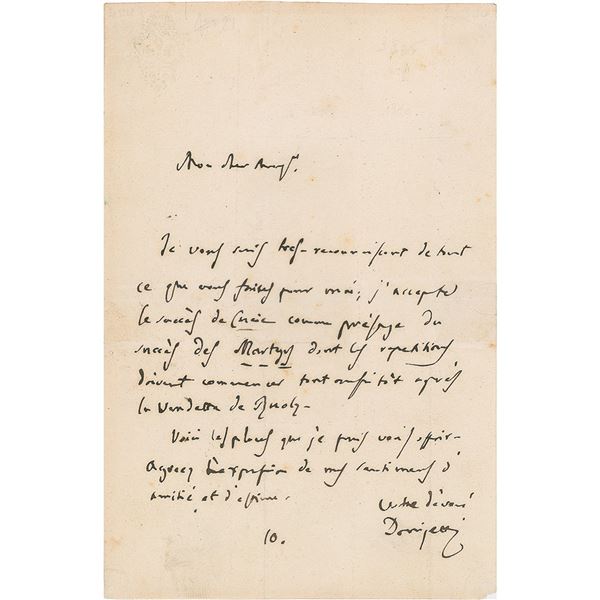 Mon cher
Je vous suis très-reconnaissant de tout
ce que vous faites pour moi; j'accepte
le succès de Lucie comme présage du
succès des Martyrs dont les repetitions
doivent commencer tout aussitôt après
la Vendetta de Ruolz-
Voici les places que je puis vous offrir-
Agreez l'expression de mes sentiments d'
amitié et d'estime.
votre dévoué
Donizetti
10.